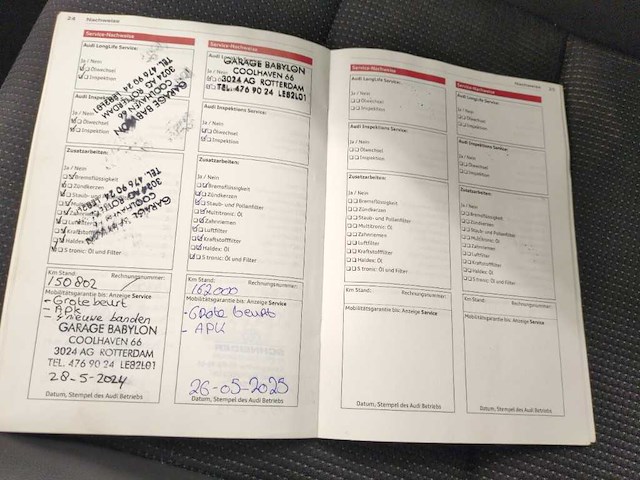 24 Nachweise
Service-Nachweise
Audi LongLife Service:
Ja / Nein
Ölwechsel
Inspektion
TEL. 476 90 24 LE82L01
3024 AG ROTTERDAM
COOLHAVEN 66
GARAGE BABYLON
Audi Inspektions Service:
Ja / Nein
Ölwechsel
Inspektion
Zusatzarbeiten:
Ja / Nein
Bremsflüssigkeit
Zündkerzen
Staub-
Kraftstofffilter
Haldex: Öl
S tronic: Öl und Filter
TEL. 476 90 24
COOLHAVEN 66
GARAGE
Km Stand: Rechnungsnummer:
150802
Mobilitätsgarantie bis: Anzeige Service
- Grote beurt
- APK
- nieuwe banden
GARAGE BABYLON
COOLHAVEN 66
3024 AG ROTTERDAM
TEL. 476 90 24 LE82L01
28-5-2024
Datum, Stempel des Audi Betriebs
Service-Nachweise
GARAGE BABYLON
COOLHAVEN 66
3024 AG ROTTERDAM
TEL. 476 90 24 LE82L01
Audi Inspektions Service:
Ja / Nein
Ölwechsel
Inspektion
Zusatzarbeiten:
Ja / Nein
Bremsflüssigkeit
Zündkerzen
Staub- und Pollenfilter
Multitronic: Öl
Zahnriemen
Luftfilter
Kraftstofffilter
Haldex: Öl
S tronic: Öl und Filter
Km Stand: Rechnungsnummer:
162000
Mobilitätsgarantie bis: Anzeige Service
- Grote beurt
- APK
26-05-2025
Datum, Stempel des Audi Betriebs
Service-Nachweise
Audi LongLife Service:
Ja / Nein
Ölwechsel
Inspektion
Audi Inspektions Service:
Ja / Nein
Ölwechsel
Inspektion
Zusatzarbeiten:
Ja / Nein
Bremsflüssigkeit
Zündkerzen
Staub- und Pollenfilter
Multitronic: Öl
Zahnriemen
Luftfilter
Kraftstofffilter
Haldex: Öl
S tronic: Öl und Filter
Km Stand: Rechnungsnummer:
Mobilitätsgarantie bis: Anzeige Service
Datum, Stempel des Audi Betriebs
Nachweise
Service-Nachweise
Audi LongLife Service:
Ja / Nein
Ölwechsel
Inspektion
Audi Inspektions Service:
Ja / Nein
Ölwechsel
Inspektion
Zusatzarbeiten:
Ja / Nein
Bremsflüssigkeit
Zündkerzen
Staub- und Pollenfilter
Multitronic: Öl
Zahnriemen
Luftfilter
Kraftstofffilter
Haldex: Öl
S tronic: Öl und Filter
Km Stand: Rechnungsnummer:
Mobilitätsgarantie bis: Anzeige Service
Datum, Stempel des Audi Betriebs